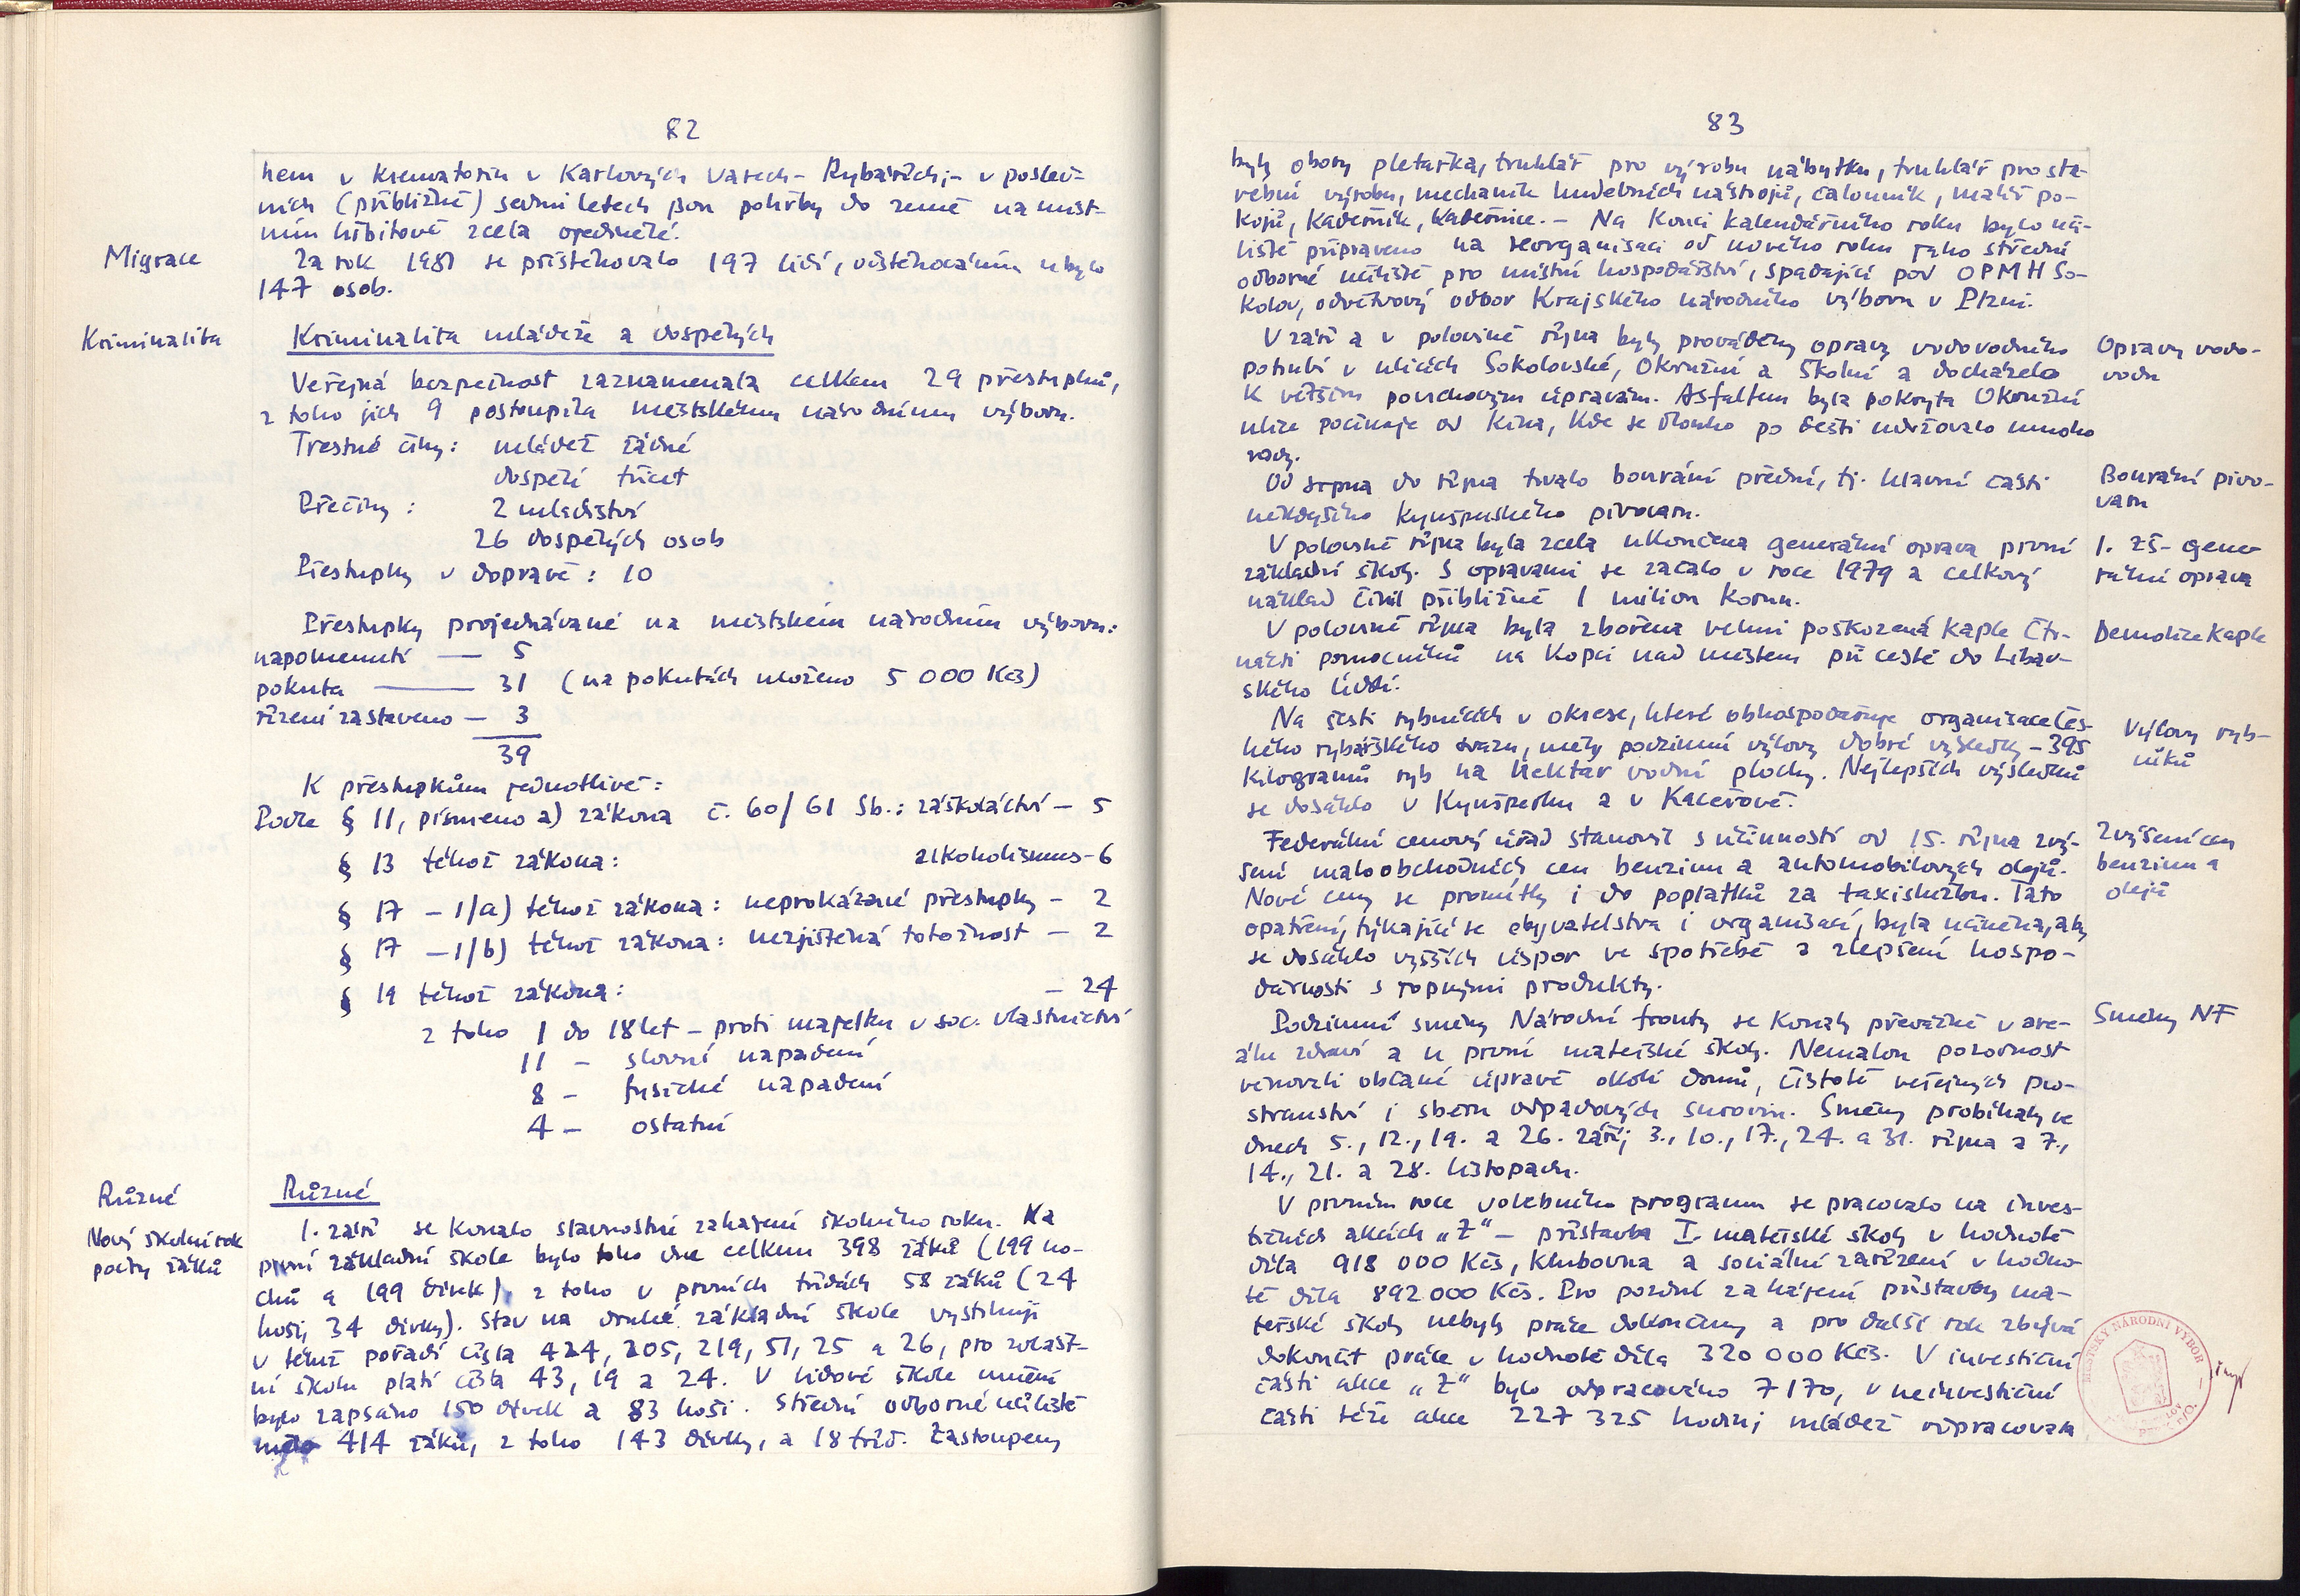 82
hem v krematoriu v Karlových Varech - Rybářích; - v posled-
ních (přibližně) sedmi letech jsou pohřby do země na míst-
ním hřbitově zcela ojedinělé.
Migrace
Za rok 1981 se přistěhovalo 197 lidí, odstěhováním ubylo
147 osob.
Kriminalita
Kriminalita mládeže a dospělých
Veřejná bezpečnost zaznamenala celkem 29 přestupků,
z toho jich 9 postoupila městskému národnímu výboru.
Trestné činy: mládež žádné
dospělí třicet
Přečiny: 2 mladiství
26 dospělých osob
Přestupky v dopravě: 10
Přestupky projednávané na městském národním výboru:
napomenutí — 5
pokuta — 31 (na pokutách uloženo 5 000 Kčs)
řízení zastaveno — 3
39
K přestupkům jednotlivě:
Podle § 11, písmeno a) zákona č. 60/61 Sb.: záškoláctví — 5
§ 13 téhož zákona: alkoholismus - 6
§ 17 — 1/a) téhož zákona: neprokázané přestupky — 2
§ 17 — 1/b) téhož zákona: nezjištěná totožnost — 2
§ 19 téhož zákona: — 24
z toho 1 do 18 let — proti majetku v soc. vlastnictví
11 — slovní napadení
8 — fysické napadení
4 — ostatní
Různé
Různé
Nový školní rok
počty žáků
1. září se konalo slavnostní zahájení školního roku. Na
první základní škole bylo toho dne celkem 398 žáků (199 ho-
chů a 199 dívek), z toho v prvních třídách 58 žáků (24
hoši, 34 dívky). Stav na druhé základní škole vystihují
v témž pořadí čísla 424, 205, 219, 51, 25 a 26, pro zvlášt-
ní školu platí čísla 43, 19 a 24. V lidové škole umění
bylo zapsáno 150 dívek a 83 hoši. Střední odborné učiliště
mělo 414 žáků, z toho 143 dívky, a 18 tříd. Zastoupeny
83
byly obory pletařka, truhlář pro výrobu nábytku, truhlář pro sta-
vební výrobu, mechanik hudebních nástrojů, čalouník, malíř po-
kojů, kadeřník, kadeřnice. — Na konci kalendářního roku bylo uči-
liště připraveno na reorganisaci od nového roku jako střední
odborné učiliště pro místní hospodářství, spadající pod OPMH So-
kolov, odvětvový odbor Krajského národního výboru v Plzni.
V září a v polovině října byly prováděny opravy vodovodního
potrubí v ulicích Sokolovské, Okružní a Školní a docházelo
k větším povrchovým úpravám. Asfaltem byla pokryta Okružní
ulice počínaje od kina, kde se dlouho po dešti udržovalo mnoho
vody.
Opravy vodo-
vodu
Od srpna do října trvalo bourání přední, tj. hlavní části
někdejšího kynšperského pivovaru.
Bourání pivo-
varu
V polovině října byla zcela ukončena generální oprava první
základní školy. S opravami se začalo v roce 1979 a celkový
náklad činil přibližně 1 milion korun.
1. ZŠ - gene-
rální oprava
V polovině října byla zbořena velmi poškozená kaple Čtr-
nácti pomocníků na kopci nad městem při cestě do Libav-
ského Údolí.
Demolice kaple
Na šesti rybnících v okrese, které obhospodařuje organisace Čes-
kého rybářského svazu, měly podzimní výlovy dobré výsledky — 395
kilogramů ryb na hektar vodní plochy. Nejlepších výsledků
se dosáhlo v Kynšperku a v Kaceřově.
Výlovy ryb-
níků
Federální cenový úřad stanovil s účinností od 15. října zvý-
šení maloobchodních cen benzinu a automobilových olejů.
Nové ceny se promítly i do poplatků za taxislužbu. Tato
opatření, týkající se obyvatelstva i organisací, byla učiněna, aby
se dosáhlo vyšších úspor ve spotřebě a zlepšení hospo-
dárnosti s ropnými produkty.
Zvýšení cen
benzinu a
olejů
Podzimní směny Národní fronty se konaly převážně v are-
álu zdraví a u první mateřské školy. Nemalou pozornost
věnovali občané úpravě okolí domů, čistotě veřejných pro-
stranství i sběru odpadových surovin. Směny probíhaly ve
dnech 5., 12., 19. a 26. září; 3., 10., 17., 24. a 31. října a 7.,
14., 21. a 28. listopadu.
Směny NF
V prvním roce volebního programu se pracovalo na inves-
tičních akcích „Z“ — přístavba I. mateřské školy v hodnotě
díla 918 000 Kčs, klubovna a sociální zařízení v hodno-
tě díla 892 000 Kčs. Pro pozdní zahájení přístavby ma-
teřské školy nebyly práce dokončeny a pro další rok zbývá
dokončit práce v hodnotě díla 320 000 Kčs. V investiční
části akce „Z“ bylo odpracováno 7 170, v neinvestiční
části téže akce 227 325 hodin; mládež odpracovala
MĚSTSKÝ NÁRODNÍ VÝBOR